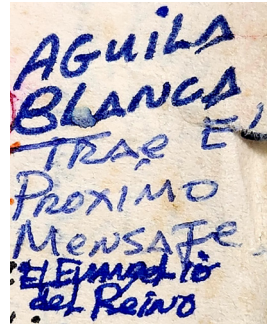 AGUILA
BLANCA
TRAE El
PROXIMO
MENSAJE.
El Evangelio
del Reino